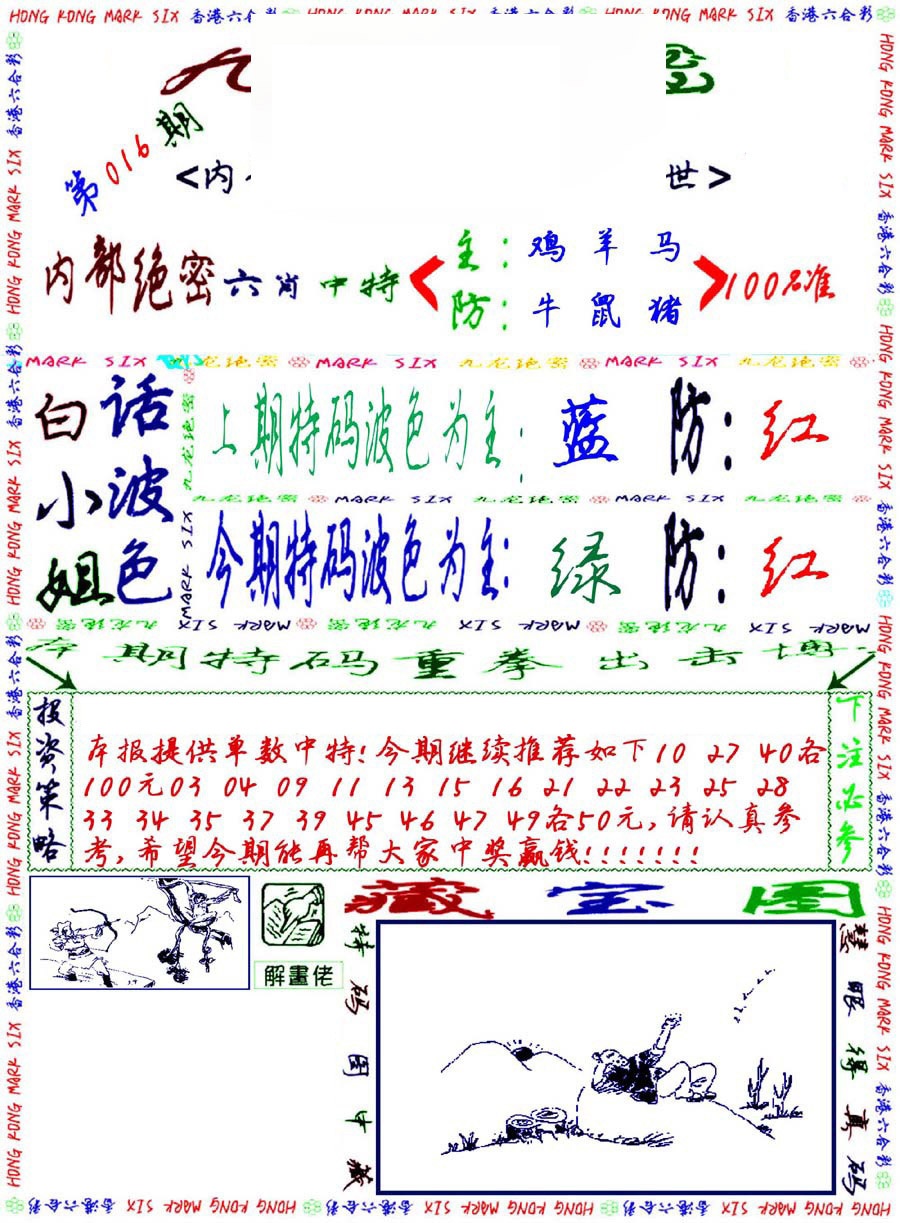 HONG KONG MARK SIX 香港六合彩 HONG KONG MARK SIX 香港六合彩
第016期
<内
世>
内部绝密六肖中特
主：鸡羊马
防：牛鼠猪
100%准
MARK SIX 九龙绝密 MARK SIX 九龙绝密 MARK SIX 九龙绝密
白小姐
话波色
上期特码波色为主：蓝 防：红
九龙绝密 MARK SIX 九龙绝密 MARK SIX 九龙绝密
今期特码波色为主：绿 防：红
MARK SIX 九龙绝密 MARK SIX 九龙绝密 MARK SIX 九龙绝密
本期特码重拳出击
投资策略
本报提供单数中特！今期继续推荐如下10 27 40各
100元03 04 09 11 13 15 16 21 22 23 25 28
33 34 35 37 39 45 46 47 49各50元,请认真参
考,希望今期能再帮大家中奖赢钱!!!!!!!
下注必参
解畫佬
藏宝图
特码图中藏
慧眼得真码
HONG KONG MARK SIX 香港六合彩 HONG KONG MARK SIX 香港六合彩 HONG KONG MARK SIX 香港六合彩